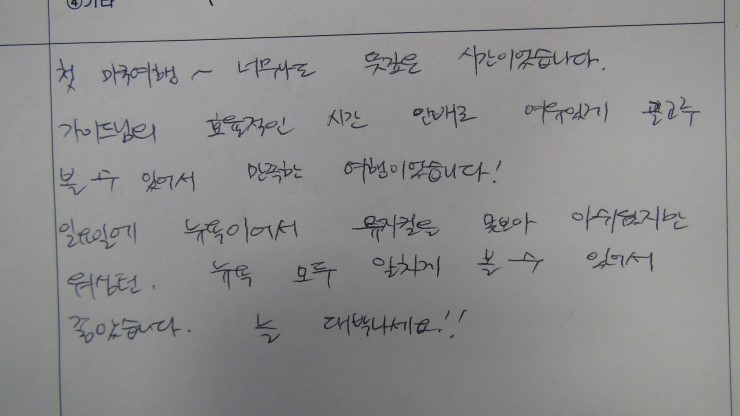 ④기타
첫 미국여행~ 너무나도 뜻깊은 시간이었습니다.
가이드님의 효율적인 시간 안배로 여유있게 골고루
볼 수 있어서 만족한 여행이었습니다!
일요일에 뉴욕이어서 뮤지컬을 못보아 아쉬웠지만
워싱턴. 뉴욕 모두 알차게 볼 수 있어서
좋았습니다. 늘 대박나세요!!